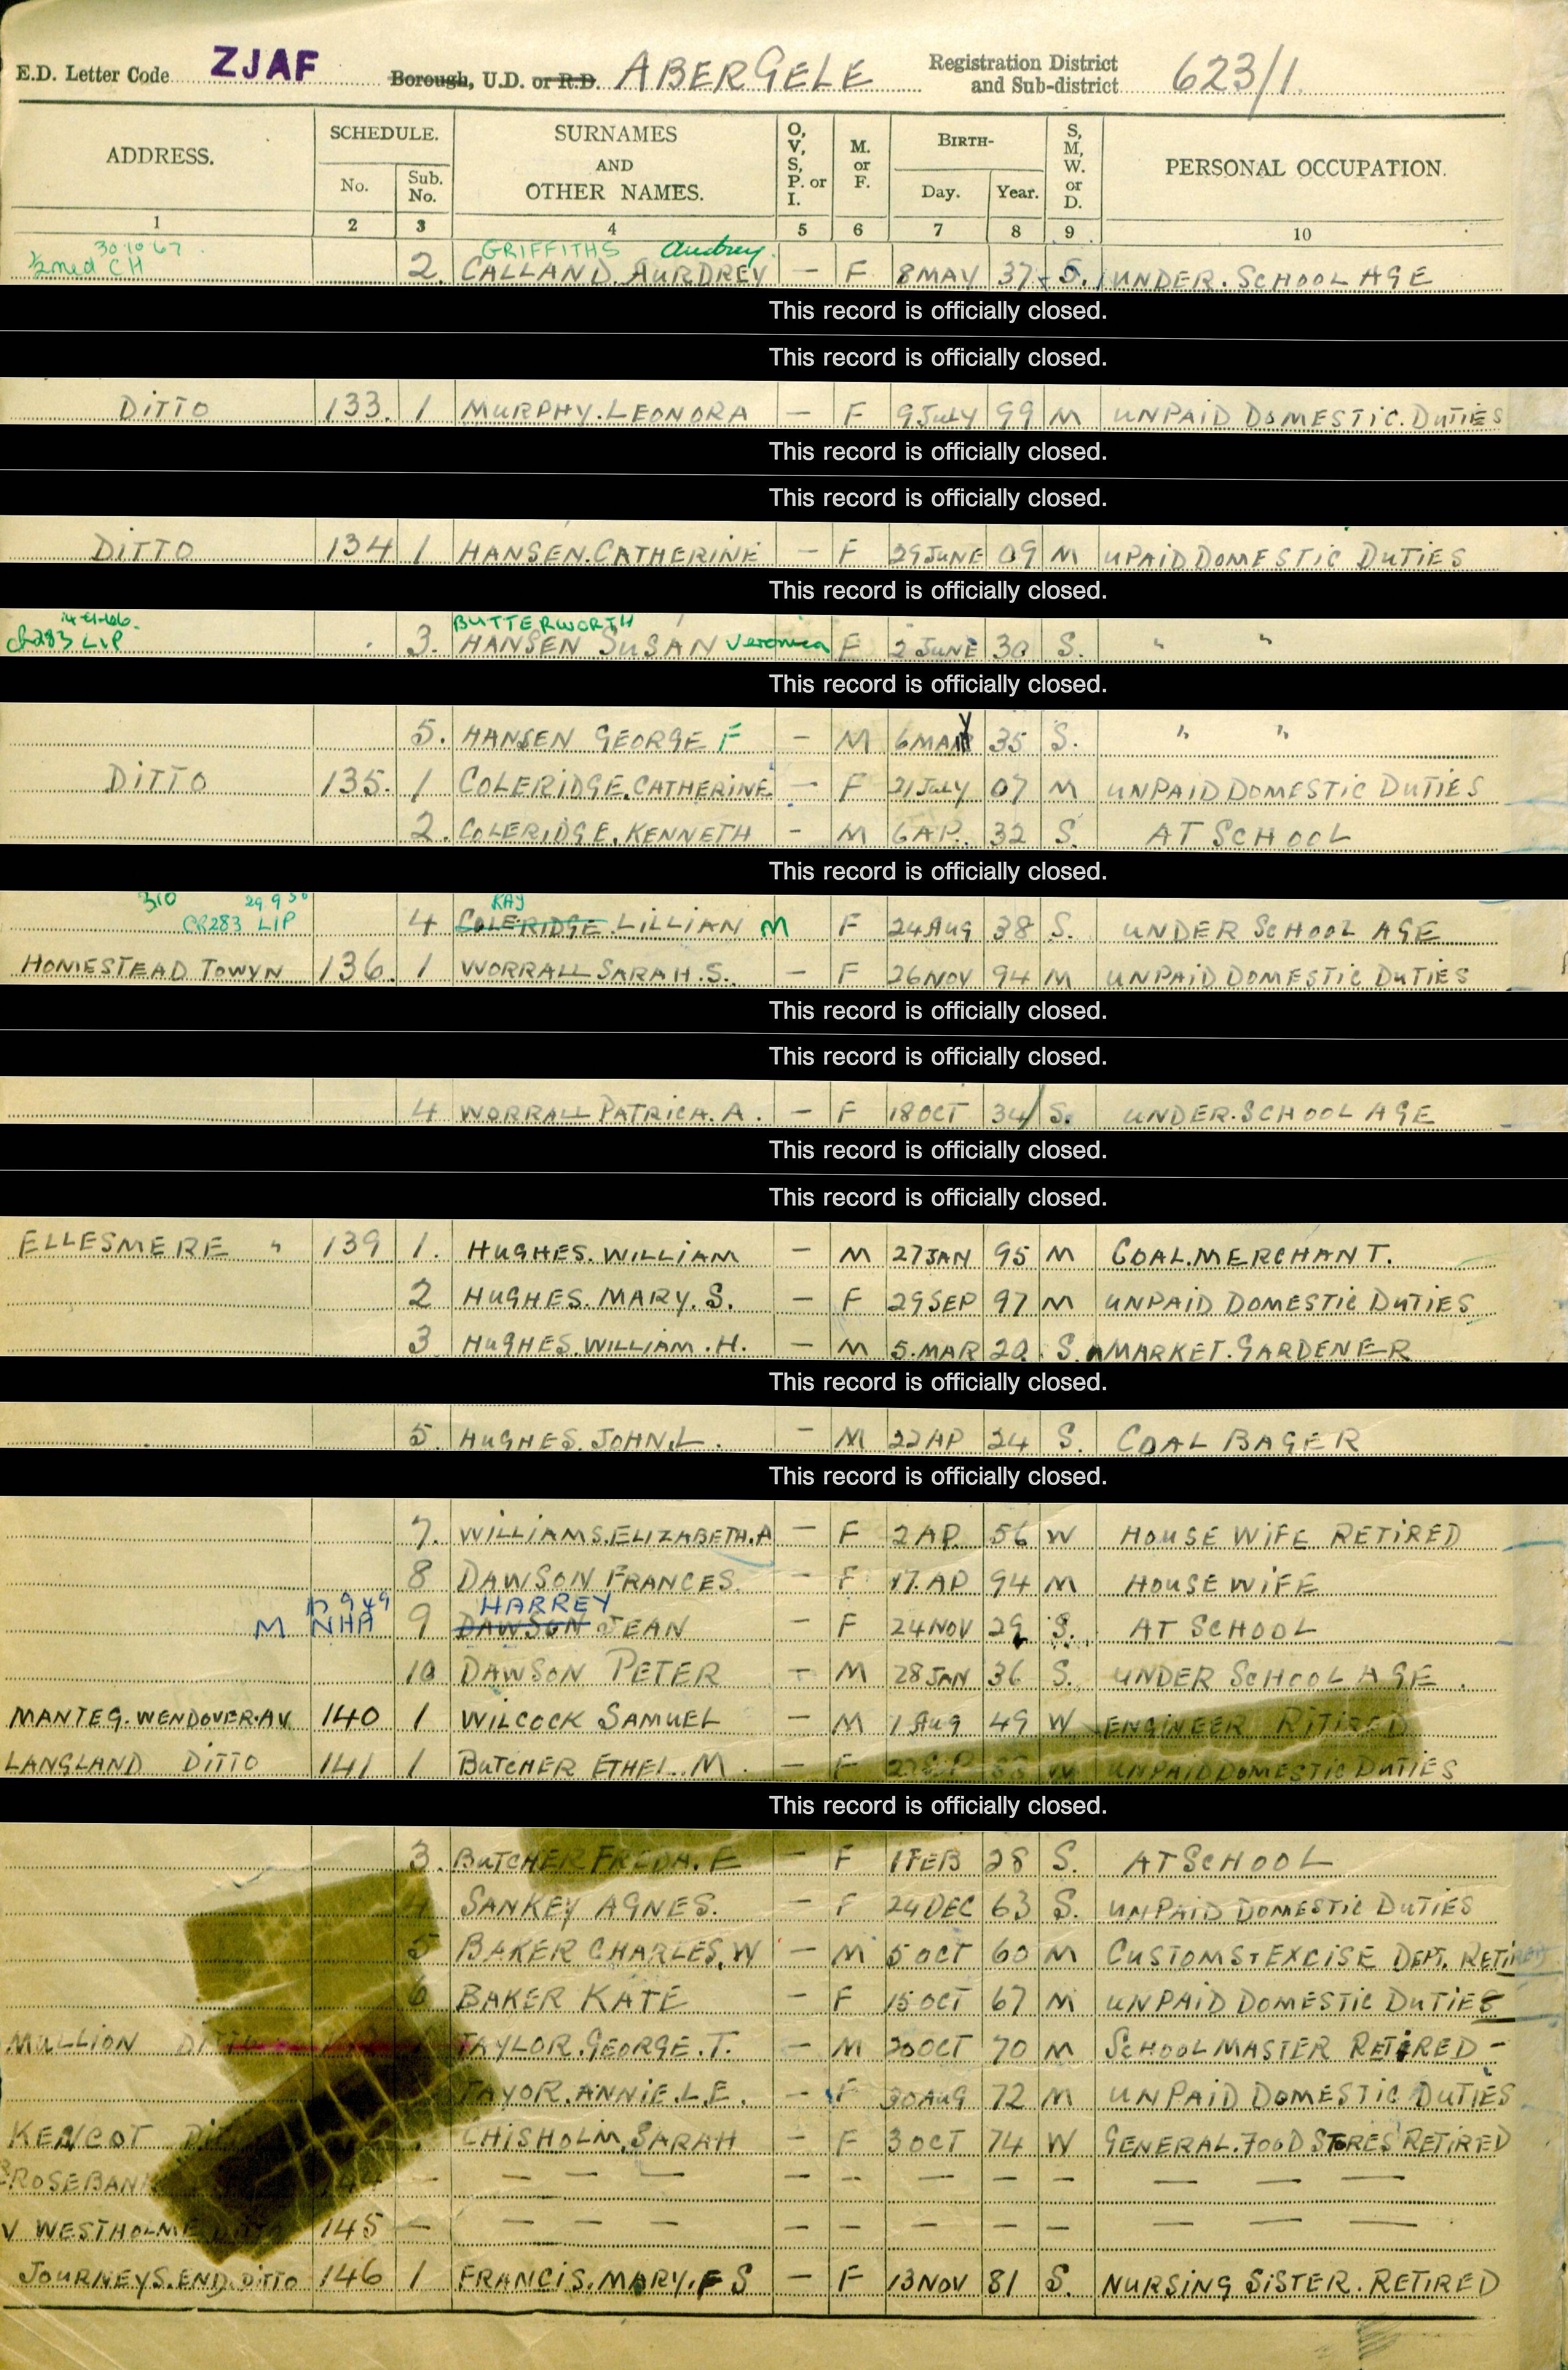 E.D. Letter Code ZJAF Borough, U.D. or R.D. ABERGELE Registration District and Sub-district 623/1
ADDRESS. SCHEDULE. No. Sub. No. SURNAMES AND OTHER NAMES. O, V, S, P. or I. M. or F. BIRTH- Day. Year. S, M, W. or D. PERSONAL OCCUPATION.
1 2 3 4 5 6 7 8 9 10
30 10 67 GRIFFITHS Audrey
½ med CH 2. CALLAND. AURDREY — F 8 MAY 37 S. UNDER. SCHOOL AGE
This record is officially closed.
This record is officially closed.
DITTO 133. 1 MURPHY. LEONORA — F 9 JULY 99 M UNPAID DOMESTIC. DUTIES
This record is officially closed.
This record is officially closed.
DITTO 134 1 HANSEN. CATHERINE — F 29 JUNE 09 M UPAID DOMESTIC DUTIES
This record is officially closed.
BUTTERWORTH
CR283 LIP 3. HANSEN SUSAN Veronica F 2 JUNE 30 S. " "
This record is officially closed.
5. HANSEN GEORGE F — M 6 MAY 35 S. " "
DITTO 135. 1 COLERIDGE. CATHERINE — F 21 JULY 07 M UNPAID DOMESTIC DUTIES
2. COLERIDGE. KENNETH - M 6 AP. 32 S. AT SCHOOL
This record is officially closed.
310 29 9 50 KAY
CR283 LIP 4 COLERIDGE. LILLIAN M F 24 AUG 38 S. UNDER SCHOOL AGE
HOMESTEAD TOWYN 136. 1 WORRALL SARAH. S. — F 26 NOV 94 M UNPAID DOMESTIC DUTIES
This record is officially closed.
This record is officially closed.
4 WORRALL PATRICA. A. — F 18 OCT 34 S. UNDER. SCHOOL AGE
This record is officially closed.
This record is officially closed.
ELLESMERE " 139 1. HUGHES. WILLIAM — M 27 JAN 95 M COAL. MERCHANT.
2 HUGHES. MARY. S. — F 29 SEP 97 M UNPAID DOMESTIC DUTIES
3 HUGHES. WILLIAM. H. — M 5. MAR 20 S. MARKET. GARDENER
This record is officially closed.
5. HUGHES. JOHN. L. — M 22 AP 24 S. COAL BAGER
This record is officially closed.
7. WILLIAMS. ELIZABETH. A — F 2 AP. 56 W HOUSE WIFE RETIRED
8 DAWSON FRANCES. — F 17. AP 94 M HOUSE WIFE
HARREY
M NHA 9 DAWSON JEAN F 24 NOV 29 S. AT SCHOOL
10 DAWSON PETER — M 28 JAN 36 S. UNDER SCHOOL AGE.
MANTEG. WENDOVER. AV 140 1 WILCOCK SAMUEL — M 1 AUG 49 W ENGINEER RITIRED
LANGLAND DITTO 141 1 BUTCHER ETHEL. M. — F W UNPAID DOMESTIC DUTIES
This record is officially closed.
3. BUTCHER FREDA. E — F 1 FEB 28 S. AT SCHOOL
4 SANKEY AGNES. — F 24 DEC 63 S. UNPAID DOMESTIC DUTIES
5 BAKER CHARLES. W — M 5 OCT 60 M CUSTOMS & EXCISE DEPT. RETIRED
6 BAKER KATE — F 15 OCT 67 M UNPAID DOMESTIC DUTIES
MULLION DITTO TAYLOR. GEORGE. T. — M 20 OCT 70 M SCHOOL MASTER RETIRED -
TAYOR. ANNIE. L. E. — F 30 AUG 72 M UNPAID DOMESTIC DUTIES
KENCOT CHISHOLM. SARAH — F 3 OCT 74 W GENERAL. FOOD STORES RETIRED
ROSEBANK — — — — — — — — — — — —
V WESTHOLME DITTO 145 — — — — — — — — — — — — —
JOURNEYS. END. DITTO 146 1 FRANCIS. MARY. F S — F 13 NOV 81 S. NURSING SISTER. RETIRED